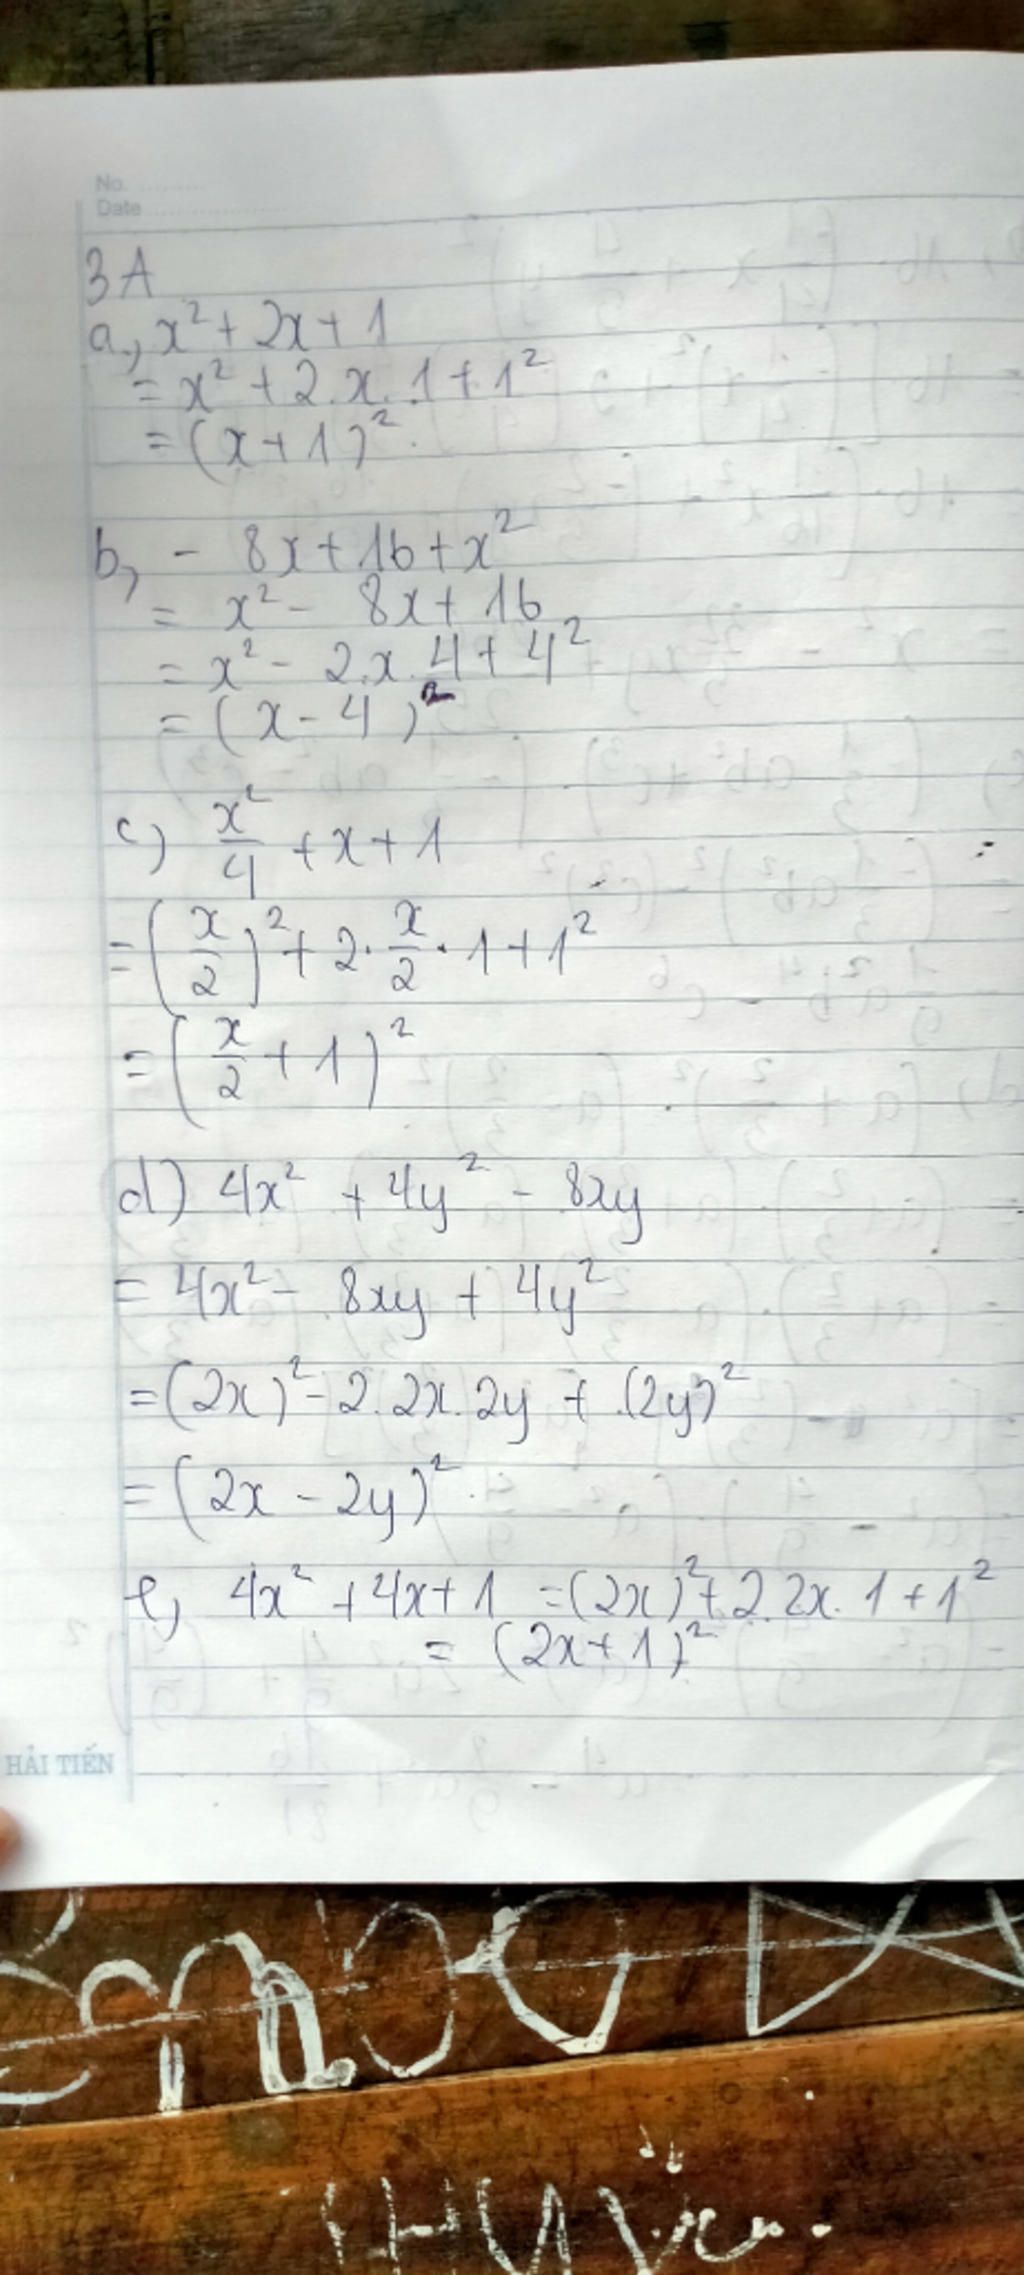 No. ..........
Date ....................
3A
a, x² + 2x + 1
= x² + 2.x.1 + 1²
= (x + 1)²
b, - 8x + 16 + x²
= x² - 8x + 16
= x² - 2.x.4 + 4²
= (x - 4)²
c) x²/4 + x + 1
= (x/2)² + 2·x/2·1 + 1²
= (x/2 + 1)²
d) 4x² + 4y² - 8xy
= 4x² - 8xy + 4y²
= (2x)² - 2.2x.2y + (2y)²
= (2x - 2y)²
e, 4x² + 4x + 1 = (2x)² + 2.2x.1 + 1²
= (2x + 1)²
HẢI TIẾN